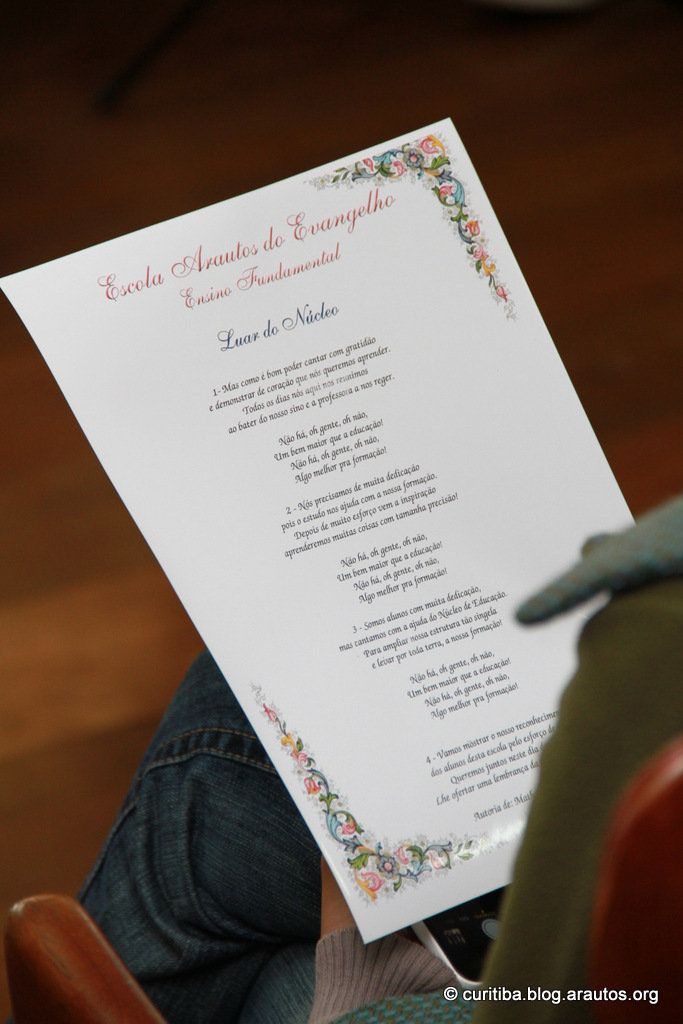 Escola Arautos do Evangelho
Ensino Fundamental
Luar do Núcleo
1- Mas como é bom poder cantar com gratidão
e demonstrar de coração que nós queremos aprender.
Todos os dias nós aqui nos reunimos
ao bater do nosso sino e a professora a nos reger.
Não há, oh gente, oh não,
Um bem maior que a educação!
Não há, oh gente, oh não,
Algo melhor pra formação!
2 - Nós precisamos de muita dedicação
pois o estudo nos ajuda com a nossa formação.
Depois de muito esforço vem a inspiração
aprenderemos muitas coisas com tamanha precisão!
Não há, oh gente, oh não,
Um bem maior que a educação!
Não há, oh gente, oh não,
Algo melhor pra formação!
3 - Somos alunos com muita dedicação,
mas cantamos com a ajuda do Núcleo de Educação.
Para ampliar nossa estrutura tão singela
e levar por toda terra, a nossa formação!
Não há, oh gente, oh não,
Um bem maior que a educação!
Não há, oh gente, oh não,
Algo melhor pra formação!
4 - Vamos mostrar o nosso
dos alunos desta escola pelo esforço
Queremos juntos neste dia
Lhe ofertar uma lembrança
Autoria de:
© curitiba.blog.arautos.org